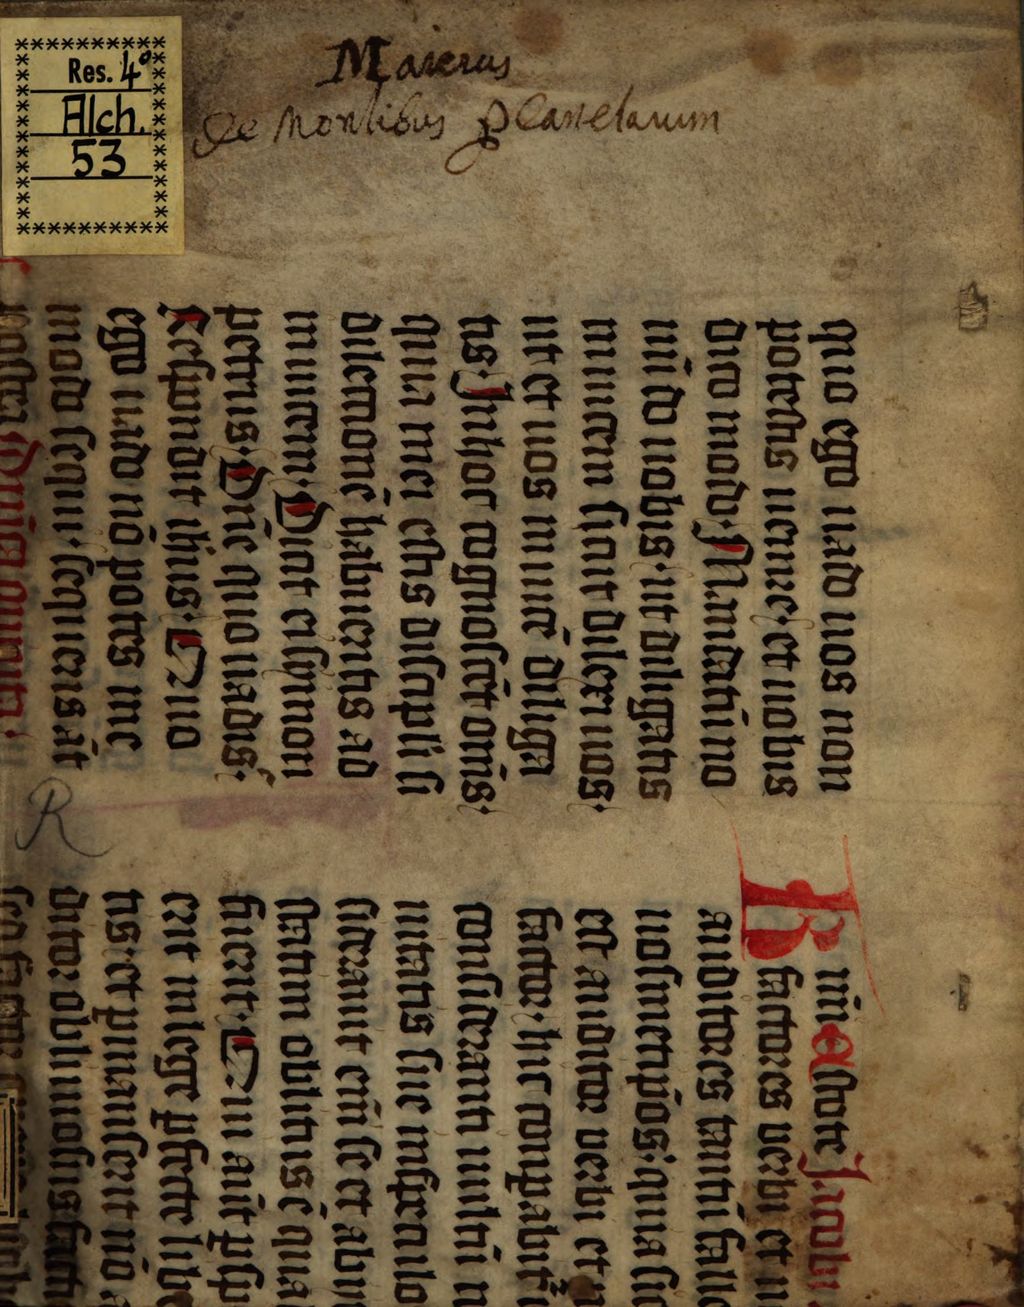 Res. 4°
Alch.
53
Maierus
De Montibus Planetarum
quo ego uado uos non
potestis uenire. et uobis
dico modo. Mandatū no
uū do uobis. ut diligatis
inuicem sicut dilexi uos.
ut et uos inuicē diliga
tis. In hoc cognoscēt om̄s.
quia mei estis discipuli si
dilectionē habueritis ad
inuicem. Dicit ei symon
petrus. Dn̄e quo uadis.
Respondit ihus. Quo
ego uado nō potes me
modo sequi. sequeris āt
R
Estote
factores uerbi et n
auditores tantū falle
uosmetip̄os. quia si
est auditor uerbi et n
factor. hic comparabit
consideranti uultū n
siderauit eni se et abiit
statim oblitus ē qua
fuerit. Qui aut̄ p̄sp
erit in lege pfecte lib
tis. et pmanserit nō a
ditor obliuiosus fact